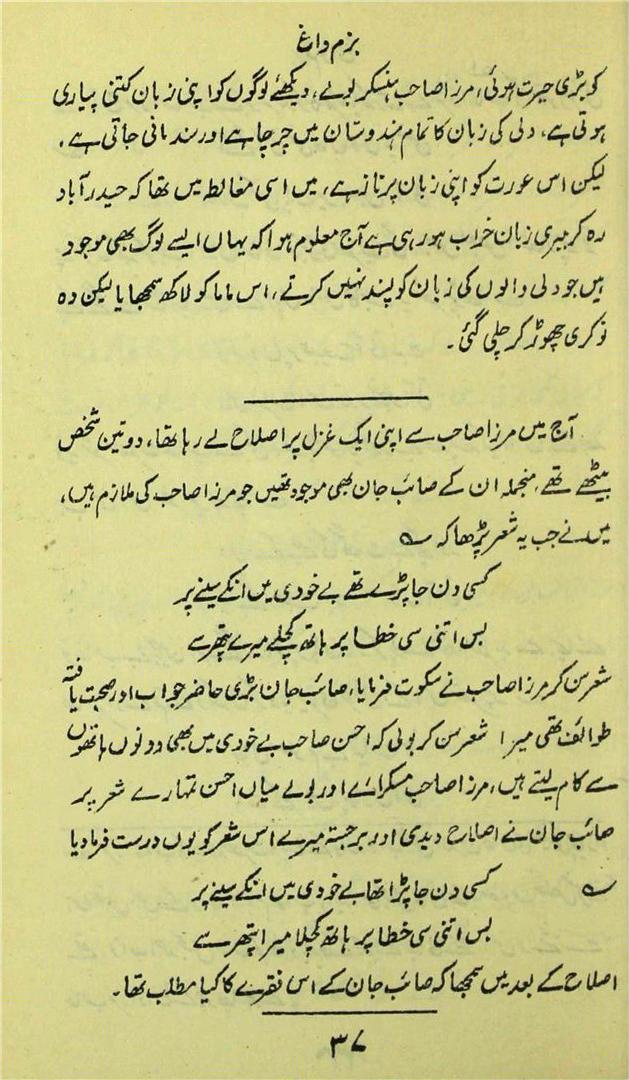 بزم داغ
کو بڑی حیرت ہوئی، مرزا صاحب ہنسکر بولے، دیکھئے لوگوں کو اپنی زبان کتنی پیاری
ہوتی ہے، دلی کی زبان کا تمام ہندوستان میں چرچا ہے اور سند مانی جاتی ہے۔
لیکن اس عورت کو اپنی زبان پر ناز ہے، میں اسی مغالطہ میں تھا کہ حیدرآباد
رہ کر میری زبان خراب ہو رہی ہے آج معلوم ہوا کہ یہاں ایسے لوگ بھی موجود
ہیں جو دلی والوں کی زبان کو پسند نہیں کرتے، اس ماما کو لاکھ سمجھایا لیکن وہ
نوکری چھوڑ کر چلی گئی۔
آج میں مرزا صاحب سے اپنی ایک غزل پر اصلاح لے رہا تھا، دو تین شخص
بیٹھے تھے، منجملہ ان کے صاحب جان بھی موجود تھیں جو مرزا صاحب کی ملازم ہیں)،
میں نے جب یہ شعر پڑھا کہ ؎
کسی دن جا پڑے تھے بے خودی میں انکے سینے پر
بس اتنی سی خطا پر ہاتھ کچلے میرے پتھر سے
شعر سن کر مرزا صاحب نے سکوت فرمایا، صاحب جان بڑی حاضر جواب اور صحبت یافتہ
طوائف تھی میرا شعر سن کر بولی کہ احسن صاحب بے خودی میں بھی دونوں ہاتھوں
سے کام لیتے ہیں، مرزا صاحب مسکرائے اور بولے میاں احسن تمہارے شعر پر
صاحب جان نے اصلاح دیدی اور برجستہ میرے اس شعر کو یوں درست فرما دیا
؎ کسی دن جا پڑا تھا بے خودی میں انکے سینے پر
بس اتنی سی خطا پر ہاتھ کچلا میرا پتھر سے
اصلاح کے بعد میں سمجھا کہ صاحب جان کے اس فقرے کا کیا مطلب تھا۔
۳۷